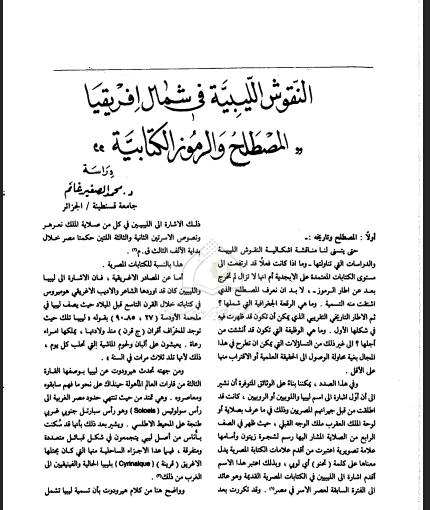 النقوش الليبية في شمال إفريقيا
"المصطلح والرموز الكتابية"
دراسة
د. محمد الصغير غانم
جامعة قسنطينة / الجزائر
أولًا : المصطلح وتاريخه :-
حتى يتسنى لنا مناقشة اشكالية النقوش الليبية
والدراسات التي تناولتها - وما اذا كانت فعلًا قد ارتقت الى
مستوى الكتابات المعتمدة على الابجدية أم انها لا تزال لم تخرج
بعد عن اطار الرموز ـ ، لا بد ان نعرف المصطلح الذي
اشتقت منه التسمية . وما هي الرقعة الجغرافية التي شملها ؟
ثم الاطار التاريخي التقريبي الذي يمكن أن تكون قد ظهرت فيه
في شكلها الأول . وما هي الوظيفة التي تكون قد أنشئت من
أجلها ؟ الى غير ذلك من التساؤلات التي يمكن ان تطرح في هذا
المجال بغية محاولة الوصول الى الحقيقة العلمية أو الاقتراب منها
على الأقل .
وفي هذا الصدد ، يمكننا بناءً على الوثائق المتوفرة أن نشير
الى أن أوّل اشارة الى اسم ليبيا والليبيون أو الربويين ، كانت قد
اطلقت من قبل جيرانهم المصريين وذلك في ما عرف بصلاية أو
لوحة الملك العقرب ملك الوجه القبلي ، حيث ظهر في الصف
الرابع من الصلاية المشار اليها رسم لشجرة زيتون وأمامها
علامة تصويرية اعتبرت من أقدم علامات الكتابة المصرية يدل
معناها على كلمة ( تحنو ) أي لوبي ، وبذلك اعتبر هذا الاسم
أقدم اشارة الى الليبيين في الكتابات المصرية القديمة وهو عائد
الى الفترة السابقة لعصر الاسر في مصر(١) . وقد تكررت بعد
ذلك الاشارة الى الليبيين في كل من صلاية الملك نعرمر
ونصوص الاسرتين الثانية والثالثة اللتين حكمتا مصر خلال
بداية الألف الثالث ق.م(٢) .
هذا بالنسبة للكتابات المصرية .
أما عن المصادر الاغريقية ، فان الاشارة الى ليبيا
والليبيين كان قد اوردها الشاعر والاديب الاغريقي هوميروس
في كتاباته خلال القرن التاسع قبل الميلاد حيث يصف ليبيا في
ملحمة الأودسة ( ٢٧ ، ٨٥-٩٠ ) بقوله « ليبيا تلك حيث
توجد للخراف أقران ( ج قرن ) منذ ولادتها ، يملكها امراء
رعاة . يعيشون على ألبان ولحوم الماشية التي تحلب كل يوم ،
ذلك لأنها تلد ثلاث مرات في السنة » .
ومن جهته تحدث هيرودوت عن ليبيا بوصفها القارة
الثالثة من قارات العالم المأهولة حينذاك على نحو ما فهم سابقوه
ومعاصروه . وهي تمتد من حيث تنتهي حدود مصر الغربية الى
رأس سولويس ( Soloeis ) وهو رأس سبارتل جنوبي غربي
طنجة على المحيط الاطلسي . ويشير بعد ذلك بأنها قد سُكنت
بـأناس من أصل ليبي يتجمعون في شكل قبائل متعددة
ومتفرقة ، فيما عدا الاجزاء الساحلية منها التي كان يحتلها
الاغريق ( قرينة ) ( Cyrinaique ) بليبيا الحالية والفينيقيين الى
الغرب من ذلك(٣) .
وواضح هنا من كلام هيرودوت بأن تسمية ليبيا تشمل